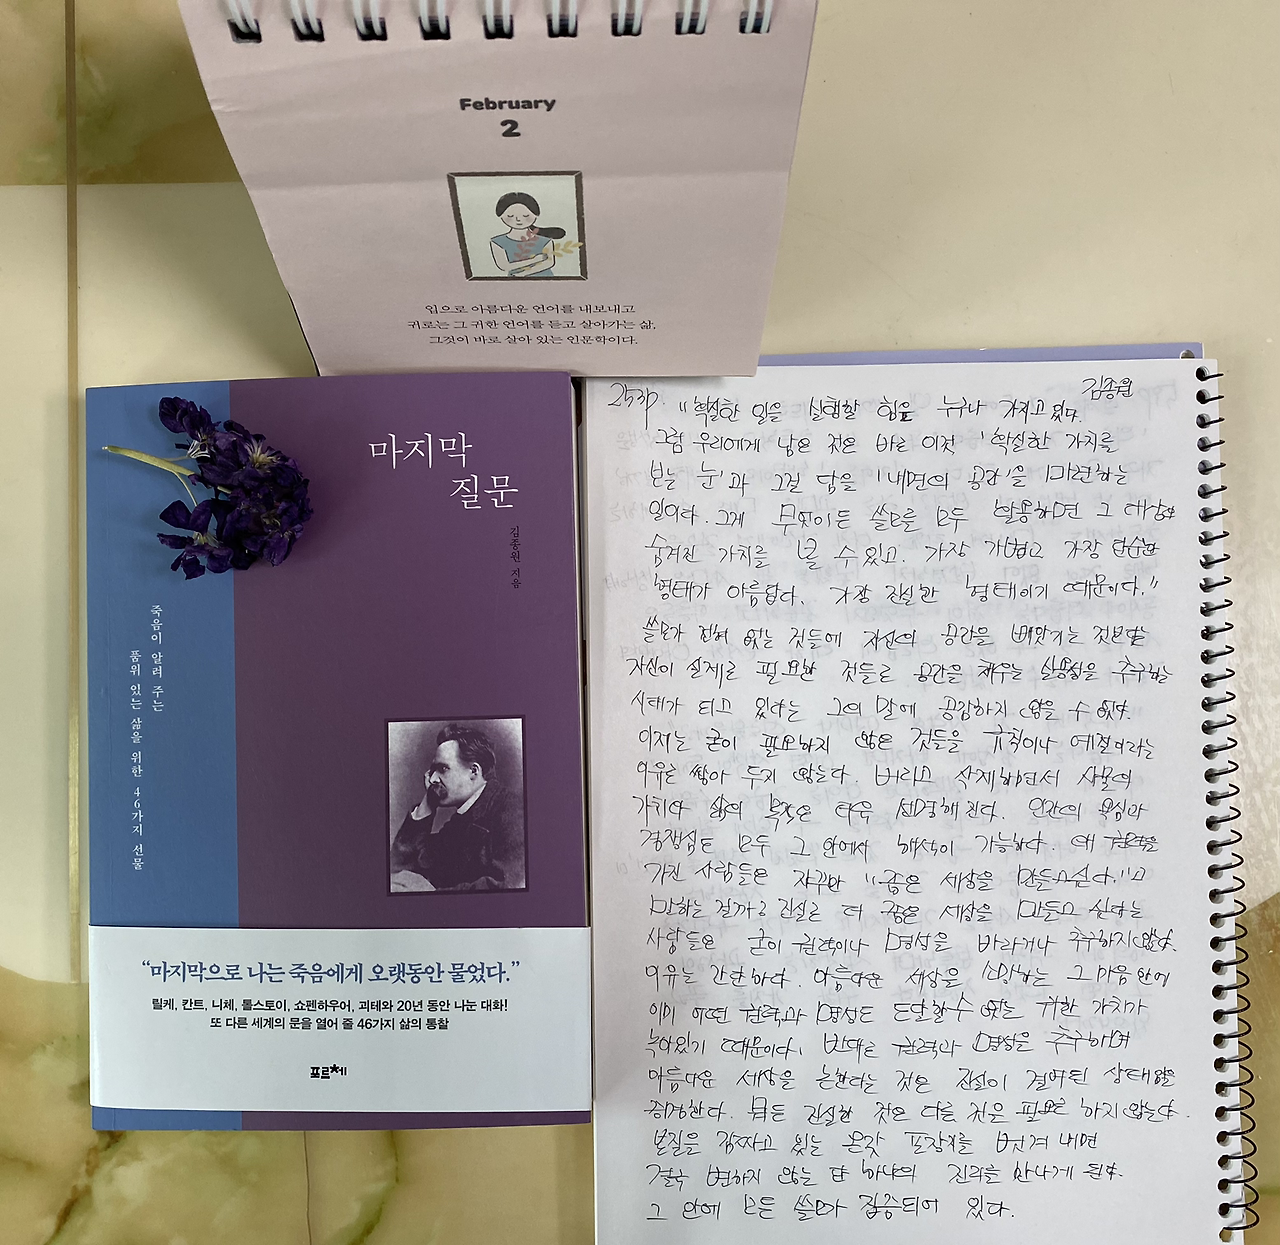 February
2
입으로 아름다운 언어를 내보내고
귀로는 그 귀한 언어를 듣고 살아가는 삶,
그것이 바로 살아 있는 인문학이다.
마지막
질문
김종원 지음
죽음이 알려 주는
품위 있는 삶을 위한 46가지 선물
“마지막으로 나는 죽음에게 오랫동안 물었다.”
릴케, 칸트, 니체, 톨스토이, 쇼펜하우어, 괴테와 20년 동안 나눈 대화!
또 다른 세계의 문을 열어 줄 46가지 삶의 통찰
포르★체
253p 김종원
“확실한 일을 실행할 힘을 누구나 가지고 있다.
그럼 우리에게 남은 것은 바로 이것 '확실한 가치를
보는 눈'과 그걸 담을 '내면의 공간'을 마련하는
일이다. 그게 무엇이든 쓸모를 모두 활용하면 그 대상의
숨겨진 가치를 볼 수 있고. 가장 가볍고 가장 단순한
형태가 아름답다. 가장 진실한 형태이기 때문이다.”
쓸모가 전혀 없는 것들에 자신의 공간을 빼앗기는 것보다는
자신이 실제로 필요한 것들로 공간을 채우는 실용성을 추구하는
시대가 되고 있다는 그의 말에 공감하지 않을 수 없다.
이제는 굳이 필요하지 않은 것들을 규칙이나 예절이라는
이유로 쌓아 두지 않는다. 버리고 삭제하면서 사물의
가치와 삶의 목적은 더욱 선명해진다. 인간의 욕심과
경쟁심도 모두 그 안에서 해석이 가능하다. 왜 권력을
가진 사람들은 자꾸만 “좋은 세상을 만들고 싶다.”고
말하는 걸까? 진실로 더 좋은 세상을 만들고 싶다는
사람들은 굳이 권력이나 명성을 바라거나 추구하지 않는다.
이유는 간단하다. 아름다운 세상을 소망하는 그 마음 안에
이미 어떤 권력과 명성도 도달할 수 없는 귀한 가치가
녹아있기 때문이다. 반대로 권력과 명성을 추구하며
아름다운 세상을 논한다는 것은 진실이 결여된 상태임을
증명한다. 모든 진실한 것은 다른 것은 필요로 하지 않는다.
본질을 감싸고 있는 온갖 포장지를 벗겨 내면
결국 변하지 않는 단 하나의 진리를 만나게 된다.
그 안에 모든 쓸모가 집중되어 있다.